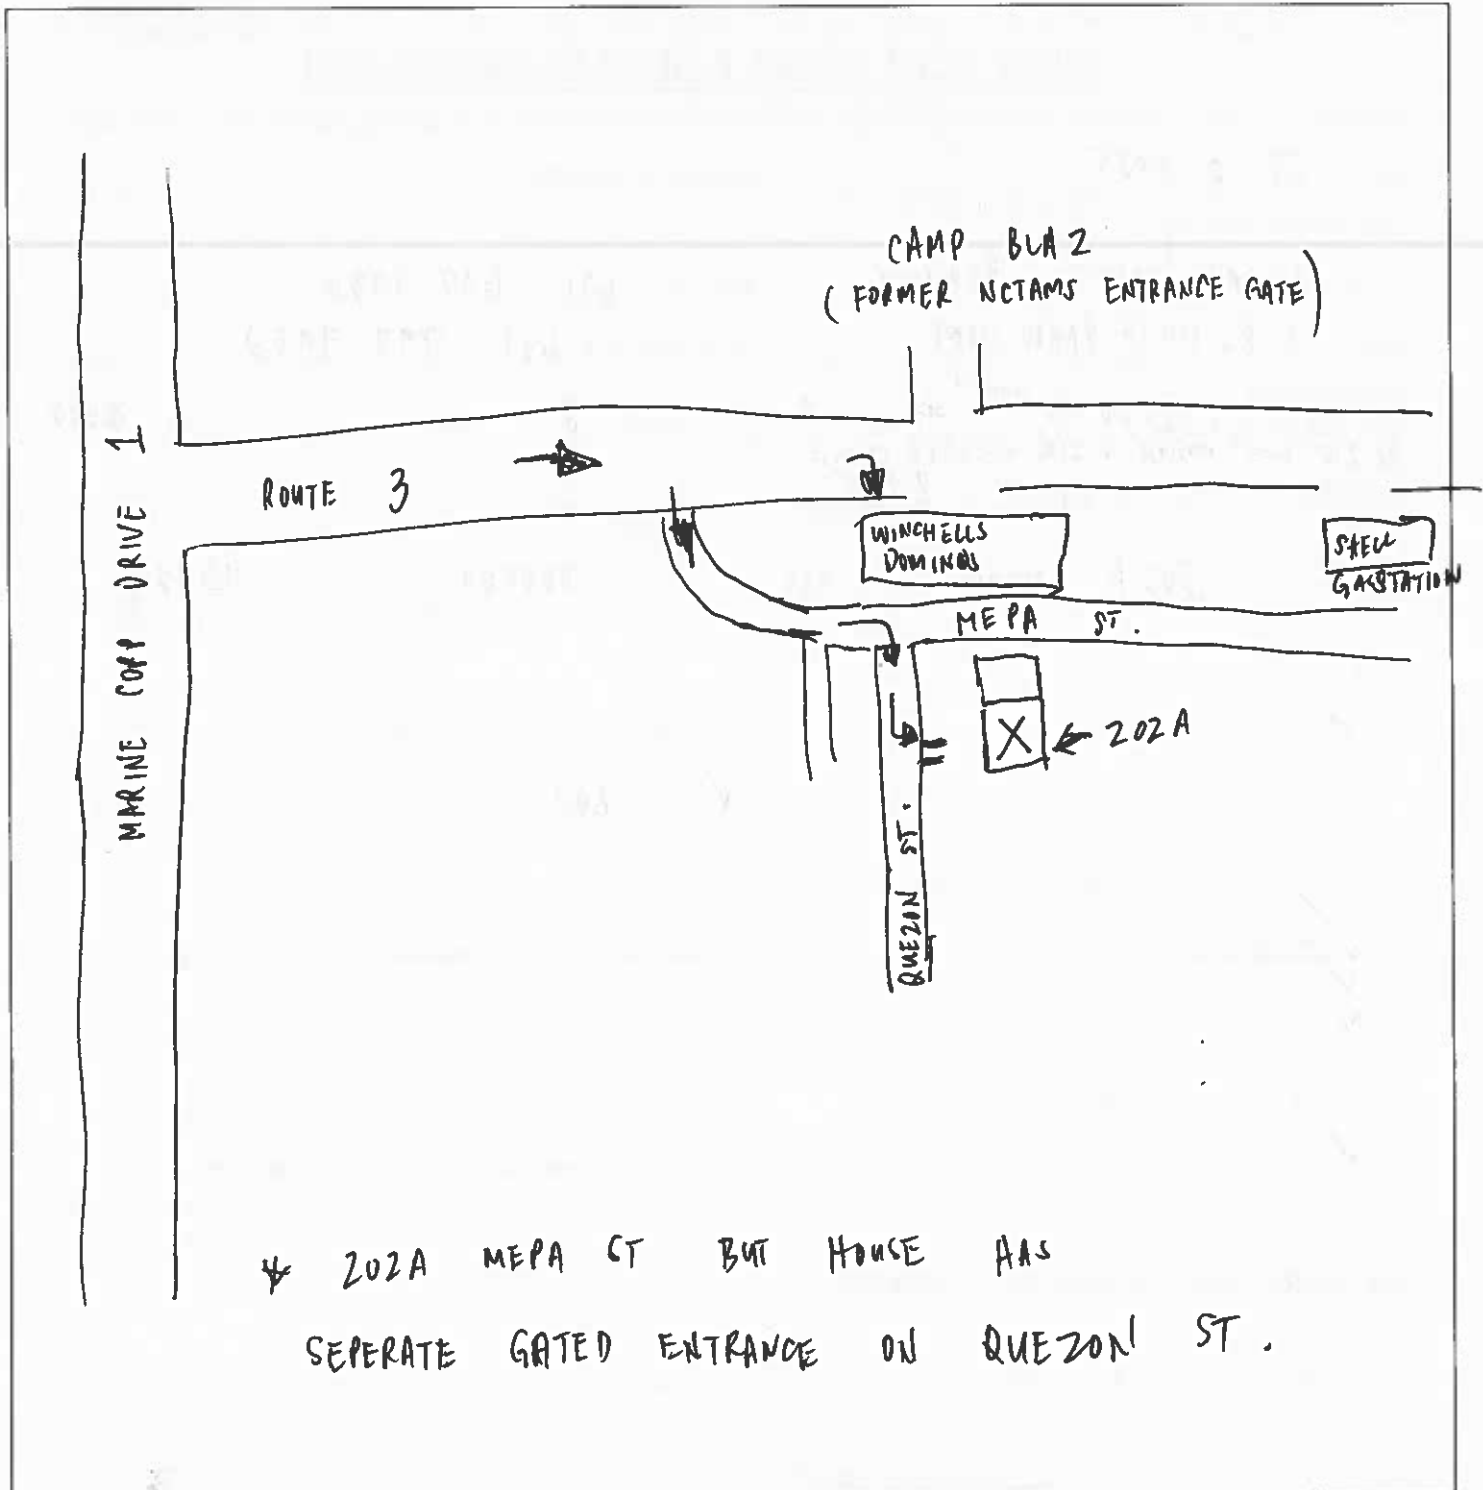 CAMP BLAZ
(FORMER NCTAMS ENTRANCE GATE)
MARINE COPP DRIVE 1
ROUTE 3
WINCHELLS
DOMINOS
SHELL
GASSTATION
MEPA ST.
202A
X
QUEZON ST.
* 202A MEPA ST BUT HOUSE HAS
SEPERATE GATED ENTRANCE ON QUEZON ST.